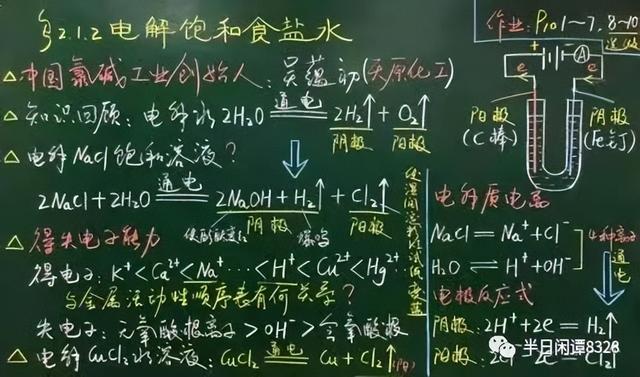 §2.1.2电解饱和食盐水
作业:P101~7,8~10
选做
△中国氯碱工业创始人:吴蕴初(天原化工)
△知识回顾:电解水2H2O 通电 2H2↑+O2↑
阴极 阳极
△电解NaCl饱和溶液?
2NaCl+2H2O 通电 2NaOH+H2↑+Cl2↑
阴极 阳极
使酚酞变红 爆鸣
使湿润淀粉KI试纸变蓝
△得失电子能力
得电子:K⁺<Ca²⁺<Na⁺…<H⁺<Cu²⁺<Hg²⁺…
与金属活动性顺序表有何关系?
失电子:无氧酸根离子>OH⁻>含氧酸根
△电解CuCl2水溶液:CuCl2 通电 Cu+Cl2↑(阳)
+ - A
e e
阳极 (C棒)
阴极 (Fe钉)
电解质电离
NaCl=Na⁺+Cl⁻
H2O⇌H⁺+OH⁻
4种离子
通电
电极反应式
阴极:2H⁺+2e=H2↑
阳极:2Cl⁻-2e=Cl2↑
半日闲谭8328